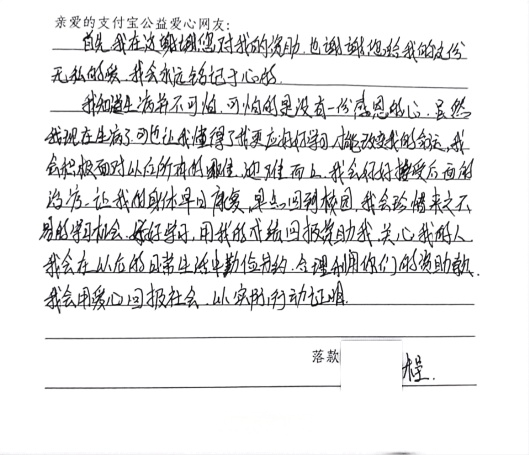 亲爱的支付宝公益爱心网友:
首先我在这谢谢您对我的资助.也谢谢您给我的这份
无私的爱.我会永远铭记于心的.
我知道生病并不可怕.可怕的是没有一份感恩的心.虽然
我现在生病了.可也让我懂得了我更应好好学习才能改变我的命运.我
会积极面对以后所有的困难.迎难而上.我会好好接受后面的
治疗.让我的身体早日康复.早点回到校园.我会珍惜来之不
易的学习机会.好好学习,用我的成绩回报资助我.关心我的人
我会在以后的日常生活中勤俭节约.合理利用你们的资助款.
我会用爱心回报社会.以实际行动证明.
落款
程.